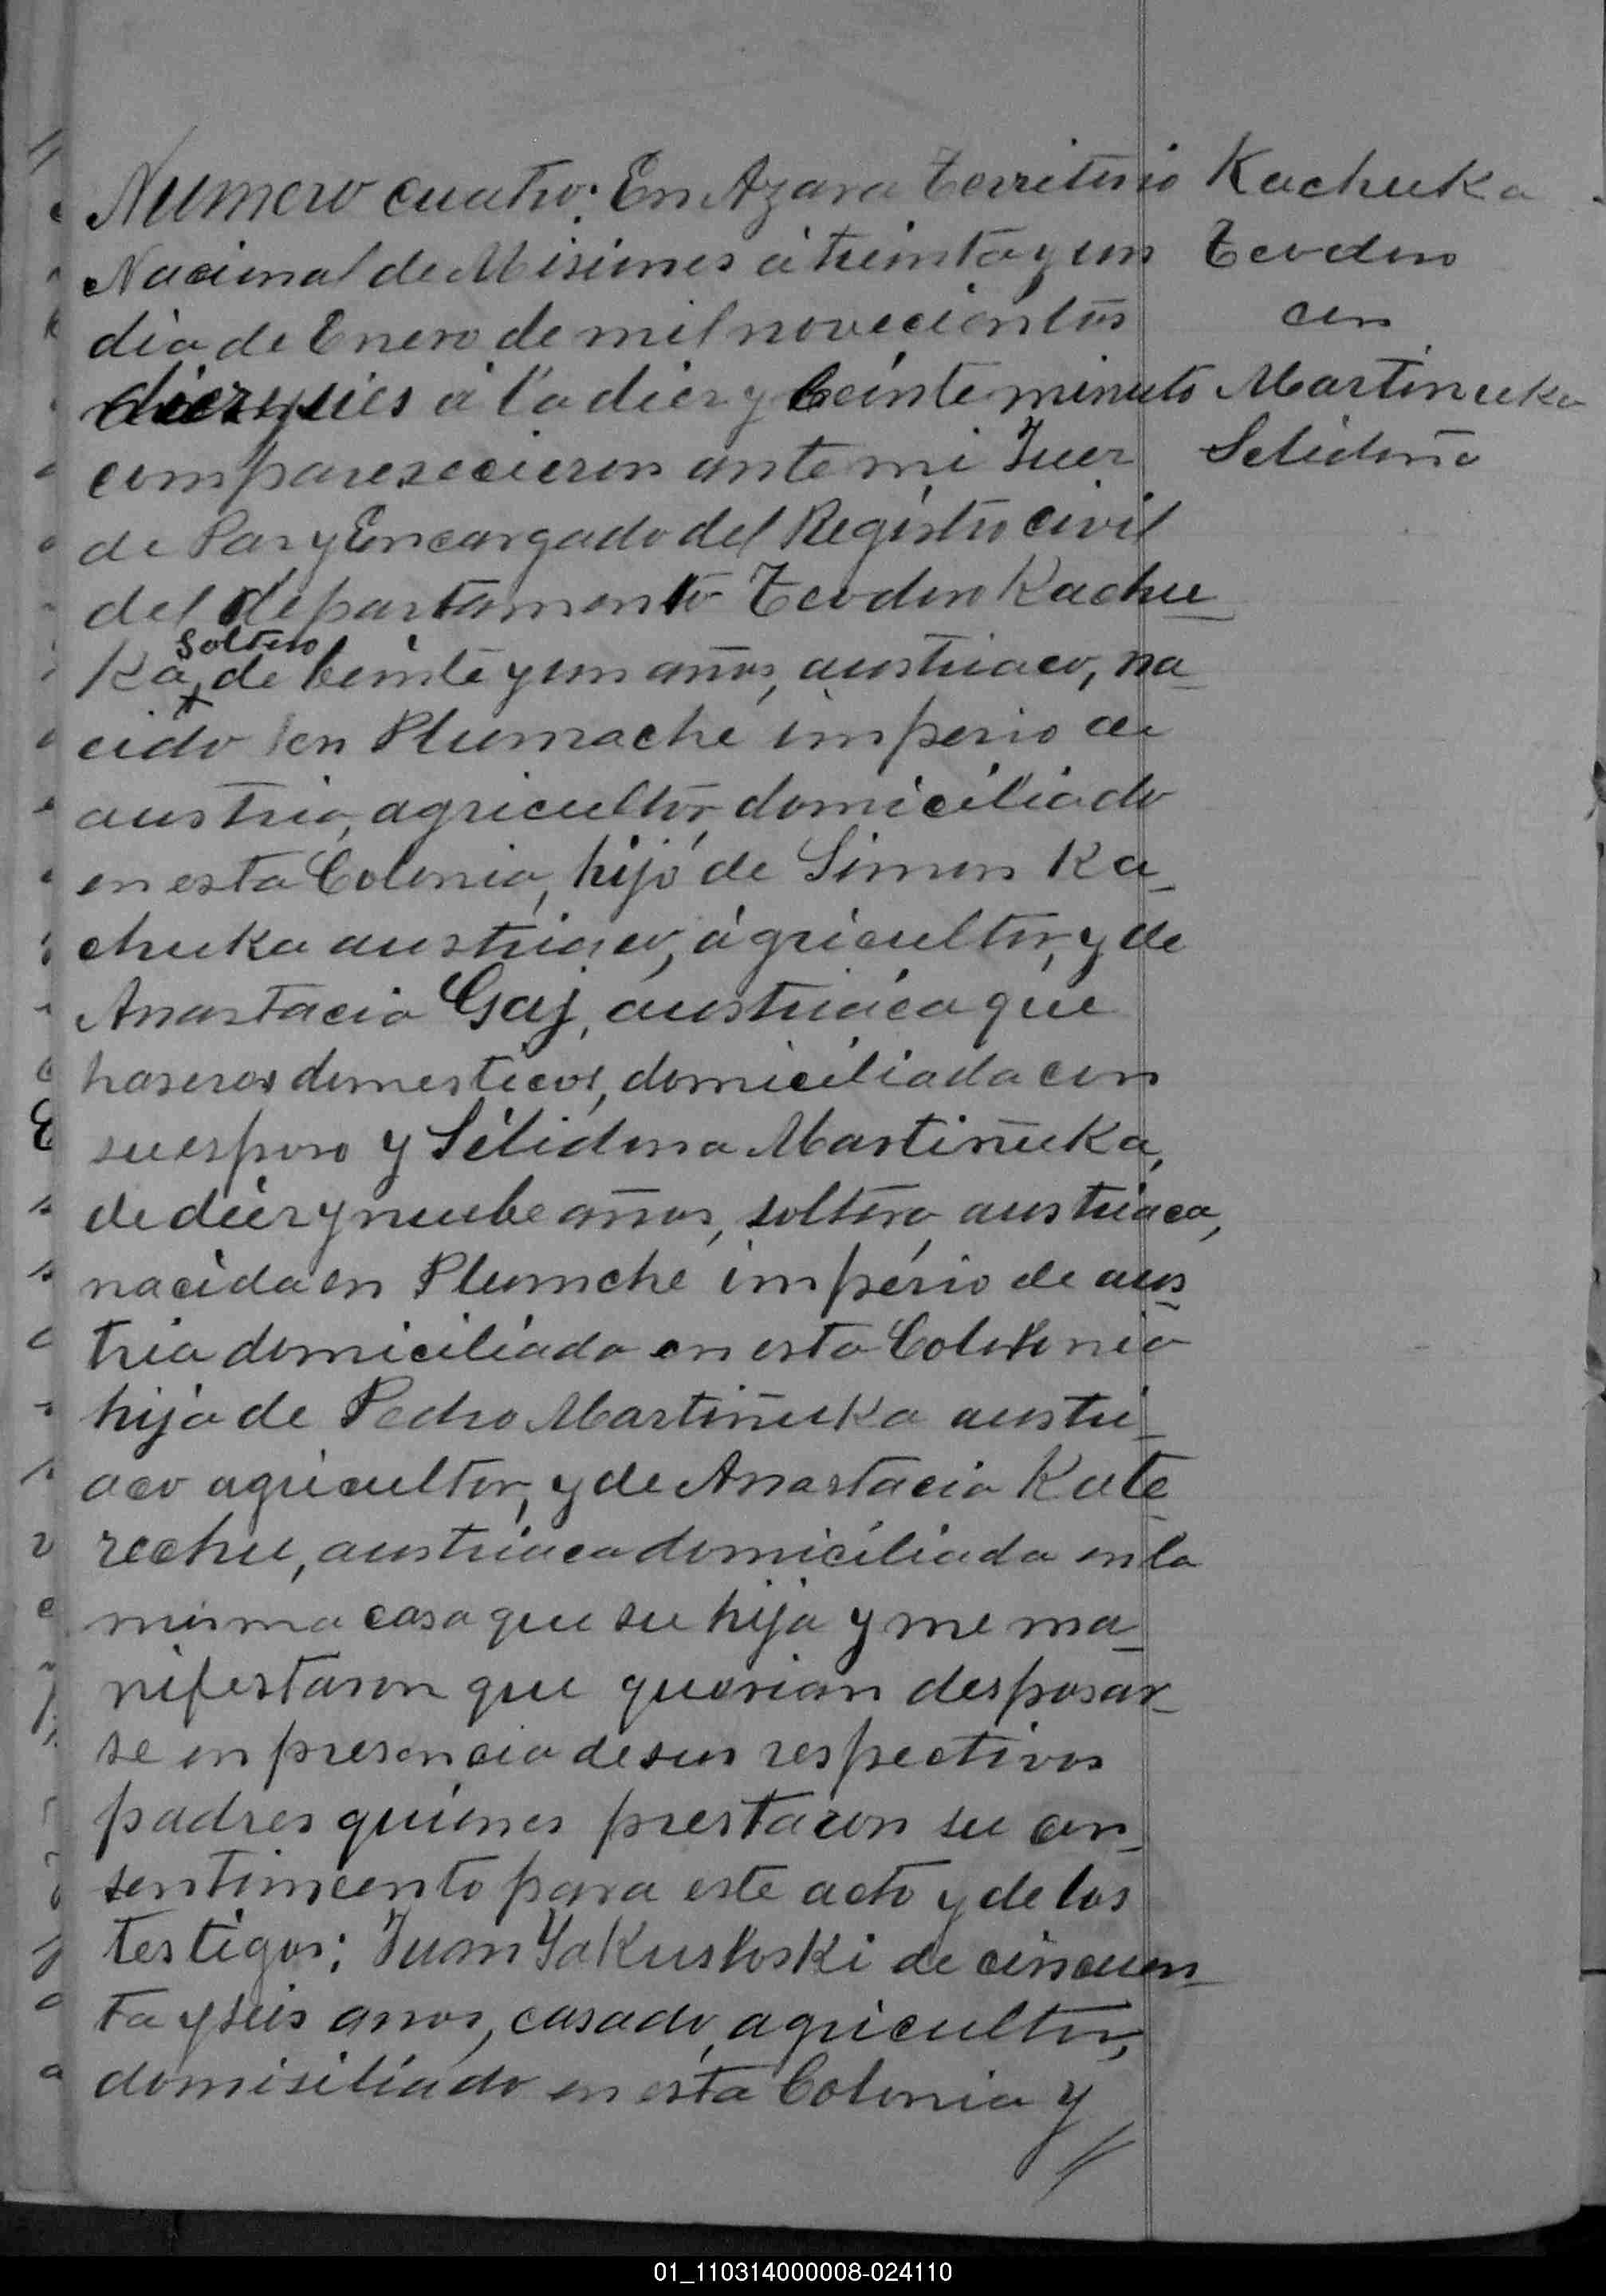 Numero cuatro: En Azara Territorio
Nacional de Misiones á treinta y un
dia de Enero de mil novecientos
diez y seis á la diez y beinte minuto
comparesecieron ante mi Juez
de Paz y Encargado del Registro civil
del departamento Teodoro Kachu
Soltero
ka, de beinte y un años, austriaco, na
cido en Plumache imperio de
austria, agricultor, domiciliado
en esta Colonia, hijo de Simon Ka
chuka austriaco, agricultor, y de
Anastacia Gaj, austriaca que
haseres domesticos, domiciliada con
su esposo y Selidona Martiñuka,
de diez y nuebe años, soltera, austriaca,
nacida en Plumche imperio de aus
tria domiciliada en esta Colonia
hija de Pedro Martiñuka austri
aco agricultor, y de Anastacia Kate
rechu, austriaca domiciliada en la
misma casa que su hija y me ma
nifestaron que querian desposar
se en presencia de sus respectivos
padres quienes prestaron su con
sentimiento para este acto y de los
testigos; Juan Yakustoski de cincuen
ta y seis años, casado, agricultor,
domisiliado en esta Colonia y
Kachuka
Teodoro
con
Martinuka
Selidoña
01_110314000008-024110